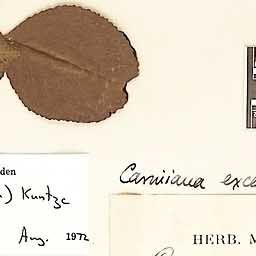 den
) Kuntze
Aug. 1972
Cariniana exce
HERB. M